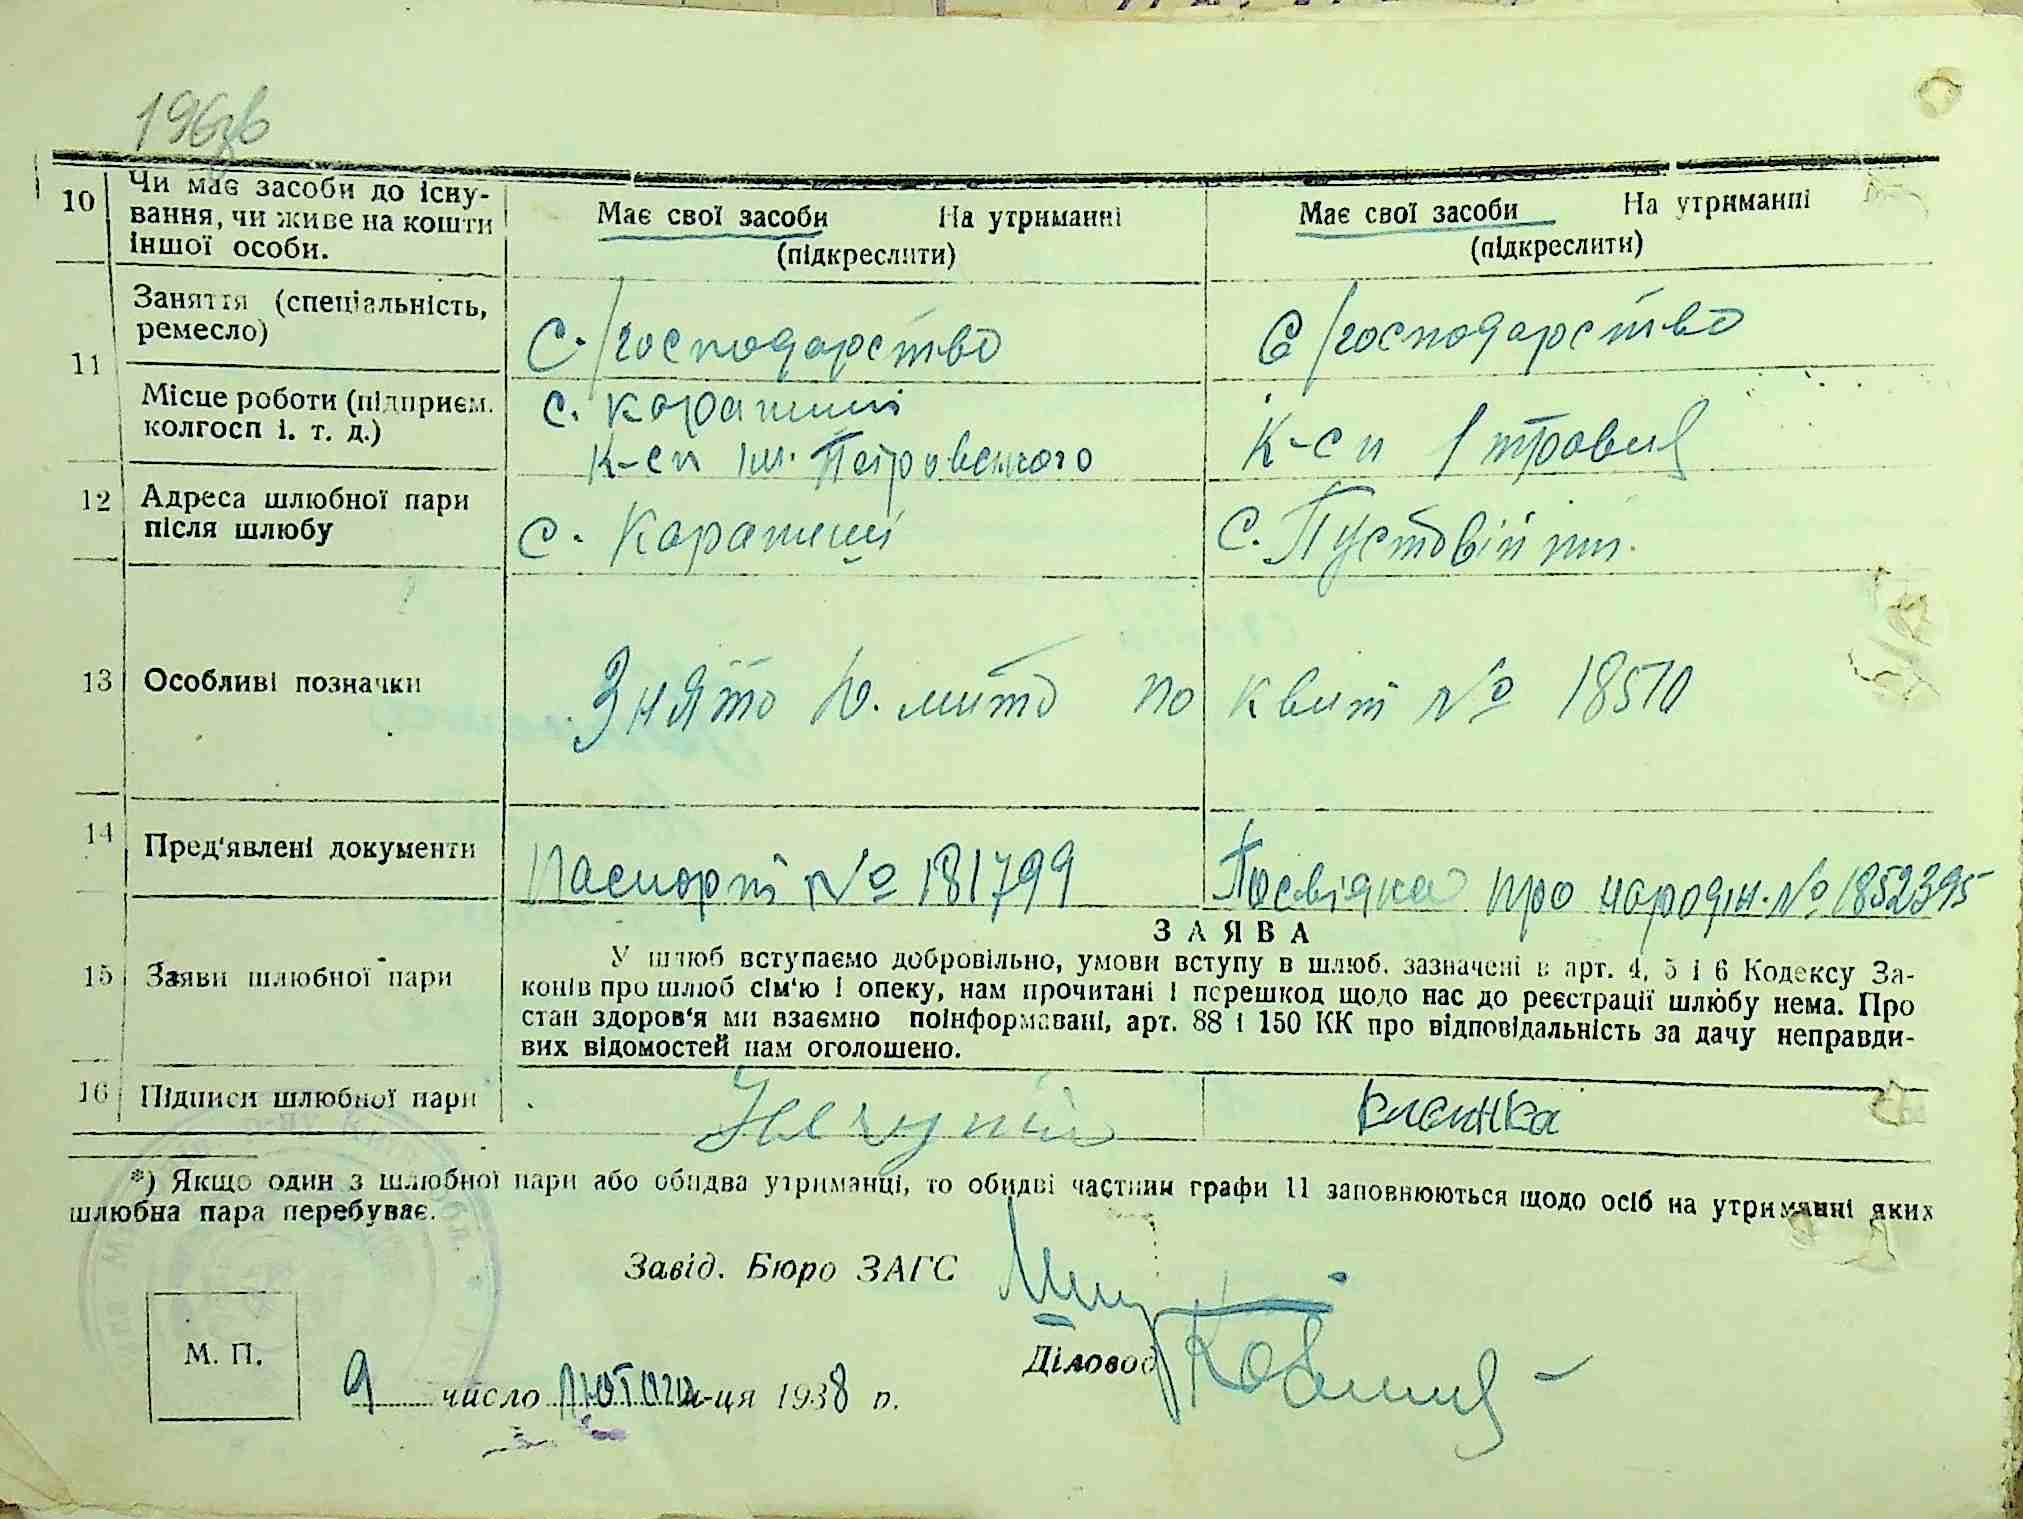 196зв
10 Чи має засоби до існу-
вання, чи живе на кошти
іншої особи.
Має свої засоби На утриманні
(підкреслити)
Має свої засоби На утриманні
(підкреслити)
11 Заняття (спеціальність,
ремесло)
С./господарство
С/господарство
Місце роботи (підприєм.
колгосп і. т. д.)
с. Каратиші
К-сп ім. Петровського
К-сп 1 травня
12 Адреса шлюбної пари
після шлюбу
с. Каратиші
с. Пустовійти.
13 Особливі позначки
Знято Ю. мито по квит № 18510
14 Пред'явлені документи
Паспорт № 181799
Посвідка про народін. № 1852395
15 Заяви шлюбної пари
ЗАЯВА
У шлюб вступаємо добровільно, умови вступу в шлюб. зазначені в арт. 4, 5 і 6 Кодексу За-
конів про шлюб сім'ю і опеку, нам прочитані і перешкод щодо нас до реєстрації шлюбу нема. Про
стан здоров'я ми взаємно поінформавані, арт. 88 і 150 КК про відповідальність за дачу неправди-
вих відомостей нам оголошено.
16 Підписи шлюбної пари
*) Якщо один з шлюбної пари або обидва утриманці, то обидві частини графи 11 заповнюються щодо осіб на утриманні яких
шлюбна пара перебуває.
Завід. Бюро ЗАГС
Діловод
М. П.
9 число лютого м-ця 1938 р.